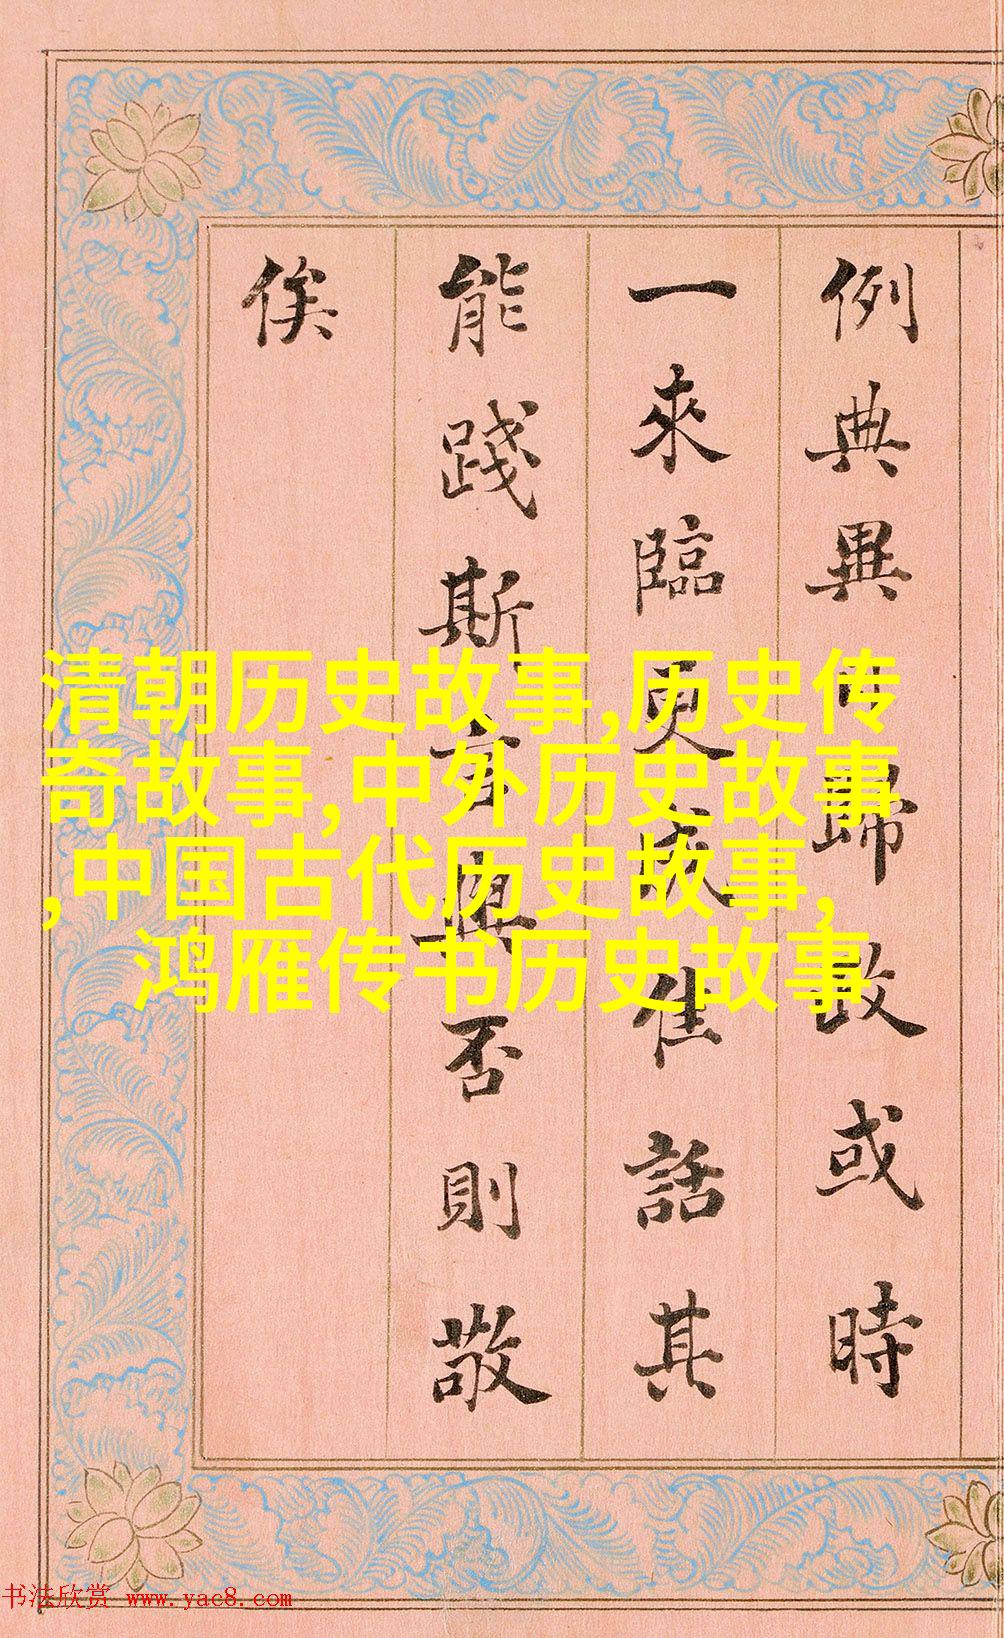 例典異日歸政或時
一來臨更成佳話其
能踐斯言與否則敬
俟
清朝历史故事,历史传
奇故事,中外历史故事
,中国古代历史故事,
鸿雁传书历史故事
书法欣赏 www.yac8.com